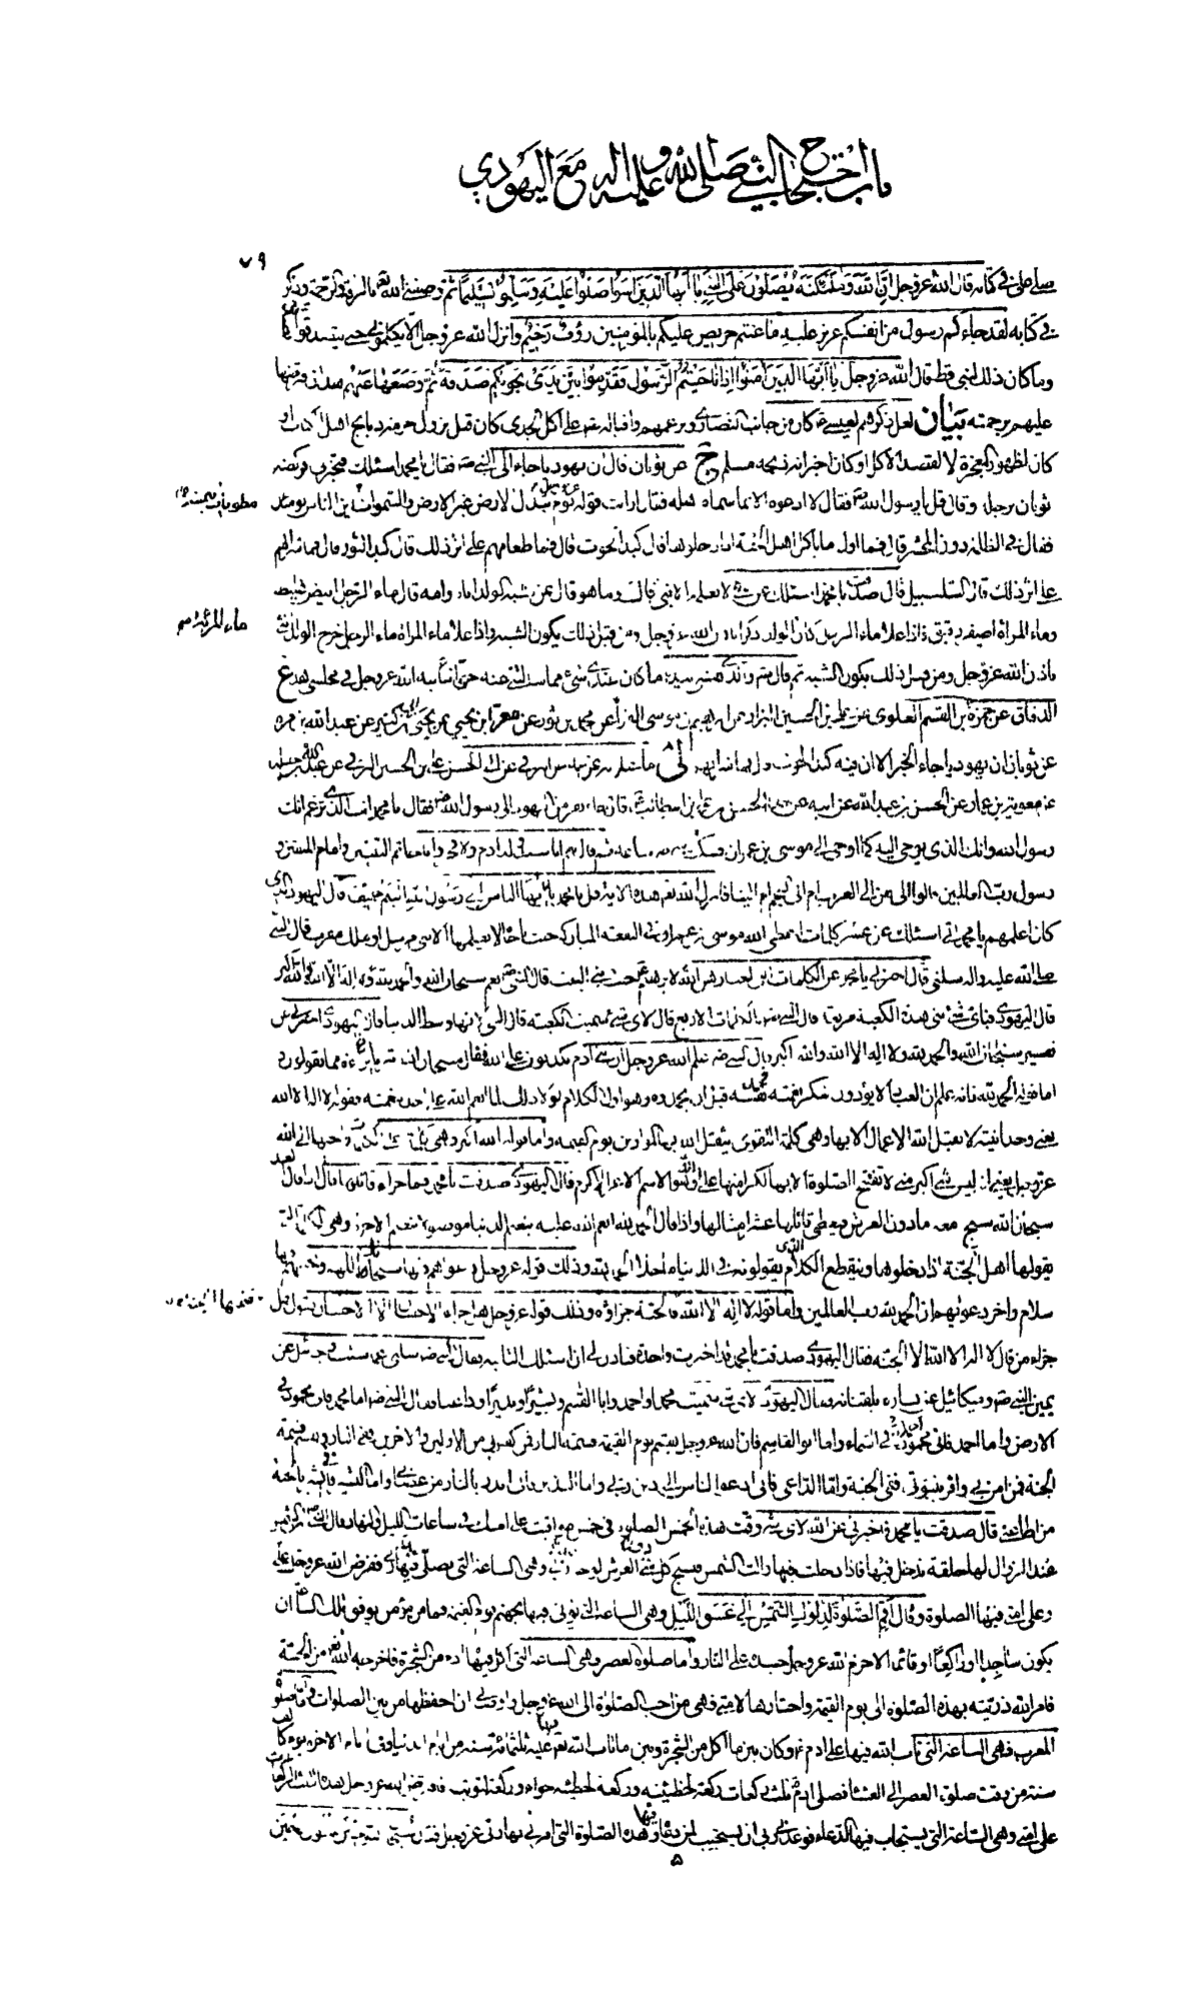 باب احتجاج النبي صلى الله عليه واله مع اليهودي
٧٩
صلى علي في كتابه قال الله عز وجل ان الله وملئكته يصلون على النبي يا ايها الذين امنوا صلوا عليه وسلموا تسليما ثم وصفني الله تع بالرافة والرحمة وذكر
في كتابه لقد جاءكم رسول من انفسكم عزيز عليه ما عنتم حريص عليكم بالمؤمنين رؤف رحيم وانزل الله عز وجل الا يكلموني حتى يتصدقوا
وما كان ذلك لنبي قط قال الله عز وجل يا ايها الذين امنوا اذا ناجيتم الرسول فقدموا بين يدي نجويكم صدقة ثم وضعها عنهم بعد ان فرضها
عليهم برحمته بيان لعل ذكرهم لعيسى ع كان من جانب النصارى وبزعمهم على اكل الجدي كان قبل نزول حرمة
كان لظهور المعجزة لا لقصد الاكل او كان اخباره مسلم ج عن ثوبان قال ان يهوديا جاء الى النبي ص فقال يا محمد اسئلك فتخبرني فركضه
ثوبان برجله وقال قل يا رسول الله ص فقال لا ادعوه الا بما سماه اهله فقال ارايت قوله عز وجل يوم تبدل الارض غير الارض والسموات اين الناس يومئذ
فقال في الظلة دون المحشر قال فما اول ما ياكل اهل الجنة اذا دخلوها قال كبد الحوت قال فما طعامهم على اثر ذلك قال كبد الثور قال فما شرابهم
على اثر ذلك قال السلسبيل قال صدقت يا محمد اسئلك عن شئ لا يعلمه الا نبي قال وما هو قال عن شبه الولد اباه وامه قال ماء الرجل ابيض غليظ
وماء المراة اصفر رقيق فاذا علا ماء الرجل كان الولد ذكرا باذن الله عز وجل ومن قبل ذلك يكون الشبه واذا علا ماء المراة ماء الرجل خرج الولد انثى
ماء المرئة
باذن الله عز وجل ومن قبل ذلك يكون الشبه ثم قال ص والذي نفسي بيده ما كان عندي شئ مما سالتني عنه حتى انبأنيه الله عز وجل في مجلسي هذا ع
الدقاق عن حمزة بن القسم العلوي عن علي بن الحسين البزاز عن ابراهيم بن موسى الفراء عن محمد بن ثور عن معمر عن يحيى بن ابي كثير عن عبد الله بن مرة
عن ثوبان ان يهوديا جاء الخبر الا ان فيه كبد الحوت لى ماجيلويه عن ابي الحسن علي بن الحسين البرقي عن عبد الله بن جبلة
عن معوية بن عمار عن الحسن بن عبد الله عن ابيه عن جده الحسن بن علي بن ابيطالب ع قال جاء نفر من اليهود الى رسول الله ص فقال يا محمد انت الذي تزعم انك
رسول الله وانك الذي يوحى اليك كما اوحى الى موسى بن عمران فسكت النبي ص ساعة ثم قال نعم انا سيد ولد ادم ولا فخر وانا خاتم النبيين وامام المتقين و
رسول رب العالمين قالوا الى من الى العرب ام الى العجم ام الينا فانزل الله تع هذه الاية قل يا محمد يا ايها الناس اني رسول الله اليكم جميعا قال اليهودي الذي
كان اعلمهم يا محمد اني اسئلك عن عشر كلمات اعطى الله موسى بن عمران في البقعة المباركة حيث ناجاه لا يعلمها الا نبي مرسل او ملك مقرب قال النبي
صلى الله عليه واله سلني قال اخبرني يا محمد عن الكلمات التي اختارهن الله لابرهيم ع حيث بنى البيت قال النبي ص نعم سبحان الله والحمد لله ولا اله الا الله والله اكبر
قال اليهودي فباي شئ بنى هذه الكعبة مربعة قال النبي ص بالكلمات الاربع قال لاي شئ سميت الكعبة قال النبي لانها وسط الدنيا قال اليهودي اخبرني عن
تفسير سبحان الله والحمد لله ولا اله الا الله والله اكبر قال النبي ص علم الله عز وجل ان بني ادم يكذبون على الله فقال سبحان الله تبريا مما يقولون و
اما قوله الحمد لله فانه علم ان العباد لا يؤدون شكر نعمته فحمد نفسه قبل ان يحمدوه وهو اول الكلام لولا ذلك لما انعم الله على احد بنعمته وقوله لا اله الا الله
يعني وحدانيته لا يقبل الله الاعمال الا بها وهي كلمة التقوى يثقل الله بها الموازين يوم القيمة واما قوله الله اكبر وهي اعلى الكلمات واحبها الى الله
عز وجل يعني انه ليس شئ اكبر مني لا تفتتح الصلوة الا بها لكرامتها على الله وهو الاسم الاعز الاكرم قال اليهودي صدقت يا محمد فما جزاء قائلها قال اذا قال العبد
سبحان الله سبح معه ما دون العرش فيعطى قائلها عشر امثالها واذا قال الحمد لله انعم الله عليه بنعيم الدنيا موصولا بنعيم الاخرة وهي الكلمة التي
يقولها اهل الجنة اذا دخلوها وينقطع الكلام الذي يقولونه في الدنيا ما خلا الحمد لله وذلك قوله عز وجل دعواهم فيها سبحانك اللهم وتحيتهم فيها
سلام واخر دعويهم ان الحمد لله رب العالمين واما قوله لا اله الا الله فالجنة جزاؤه وذلك قوله عز وجل هل جزاء الاحسان الا الاحسان يقول هل
جزاء من قال لا اله الا الله الا الجنة فقال اليهودي صدقت يا محمد قد اخبرت واحدة فتاذن لي ان اسئلك الثانية فقال النبي ص سلني عما شئت وجبرئيل عن
يمين النبي ص وميكائيل عن يساره يلقنانه فقال اليهودي لاي شئ سميت محمدا واحمد وابا القسم وبشيرا ونذيرا وداعيا فقال النبي ص اما محمد فاني محمود في
الارض واما احمد فاني محمود في السماء واما ابو القاسم فان الله عز وجل يقسم يوم القيمة قسمة النار فمن كفر بي من الاولين والاخرين ففي النار ويقسم قسمة
الجنة فمن امن بي واقر بنبوتي ففي الجنة واما الداعي فاني ادعو الناس الى دين ربي واما النذير فاني انذر بالنار من عصاني واما البشير فاني ابشر بالجنة
من اطاعني قال صدقت يا محمد فاخبرني عن الله لاي شئ وقت هذه الخمس الصلوات في خمس مواقيت على امتك في ساعات الليل والنهار فقال النبي ص ان الشمس
عند الزوال لها حلقة تدخل فيها فاذا دخلت فيها زالت الشمس فيسبح كل شئ دون العرش لوجه ربي وهي الساعة التي يصلي فيها ربي ففرض الله عز وجل علي
وعلى امتي فيها الصلوة وقال اقم الصلوة لدلوك الشمس الى غسق الليل وهي الساعة التي يؤتى فيها بجهنم يوم القيمة فما من مؤمن يوفق تلك الساعة ان
يكون ساجدا او راكعا او قائما الا حرم الله عز وجل جسده على النار واما صلوة العصر فهي الساعة التي اكل فيها ادم من الشجرة فاخرجه الله تع من الجنة
فامر الله ذريته بهذه الصلوة الى يوم القيمة واختارها لامتي فهي من احب الصلوة الى الله عز وجل واوصاني ان احفظها من بين الصلوات واما صلوة
المغرب فهي الساعة التي تاب الله فيها على ادم ع وكان بين ما اكل من الشجرة وبين ما تاب الله تع عليه فيها ثلثمائة سنة من ايام الدنيا وفي ايام الاخرة يوم كالف
سنة من وقت صلوة العصر الى العشاء فصلى ادم ثلث ركعات ركعة لخطيئته وركعة لخطيئة حواء وركعة لتوبته فافترض الله عز وجل هذه الثلث الركعات
على امتي وهي الساعة التي يستجاب فيها الدعاء فوعدني ربي ان يستجيب لمن دعاه فيها وهذه الصلوة التي امرني بها ربي عز وجل فقال سبحان الله حين تمسون وحين